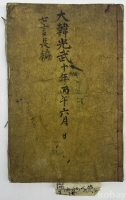 大韓光武十年丙午六月 日
七言長編